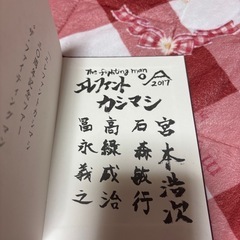 The fighting man
2017
エレファント
カシマシ
宮本浩次
石森敏行
高緑成治
冨永義之